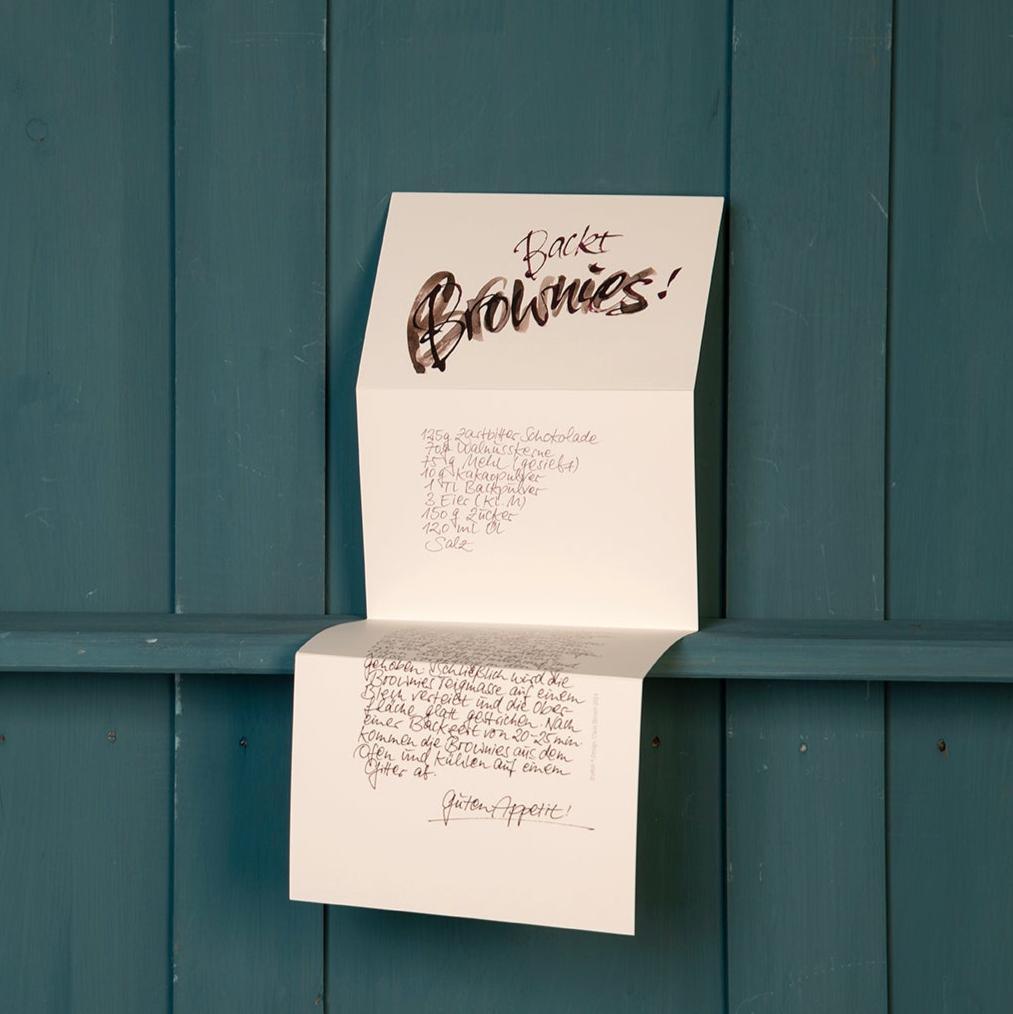 Backt
Brownies!
125g Zartbitter Schokolade
70g Walnusskerne
75g Mehl (gesiebt)
10g Kakaopulver
1 TL Backpulver
3 Eier (Kl. M)
150g Zucker
120 ml Öl
Salz
gehoben. Schließlich wird die
Brownies Teigmasse auf einem
Blech verteilt und die Ober-
fläche glatt gestrichen. Nach
einer Backzeit von 20-25 min
kommen die Brownies aus dem
Ofen und kühlen auf einem
Gitter ab.
Guten Appetit!